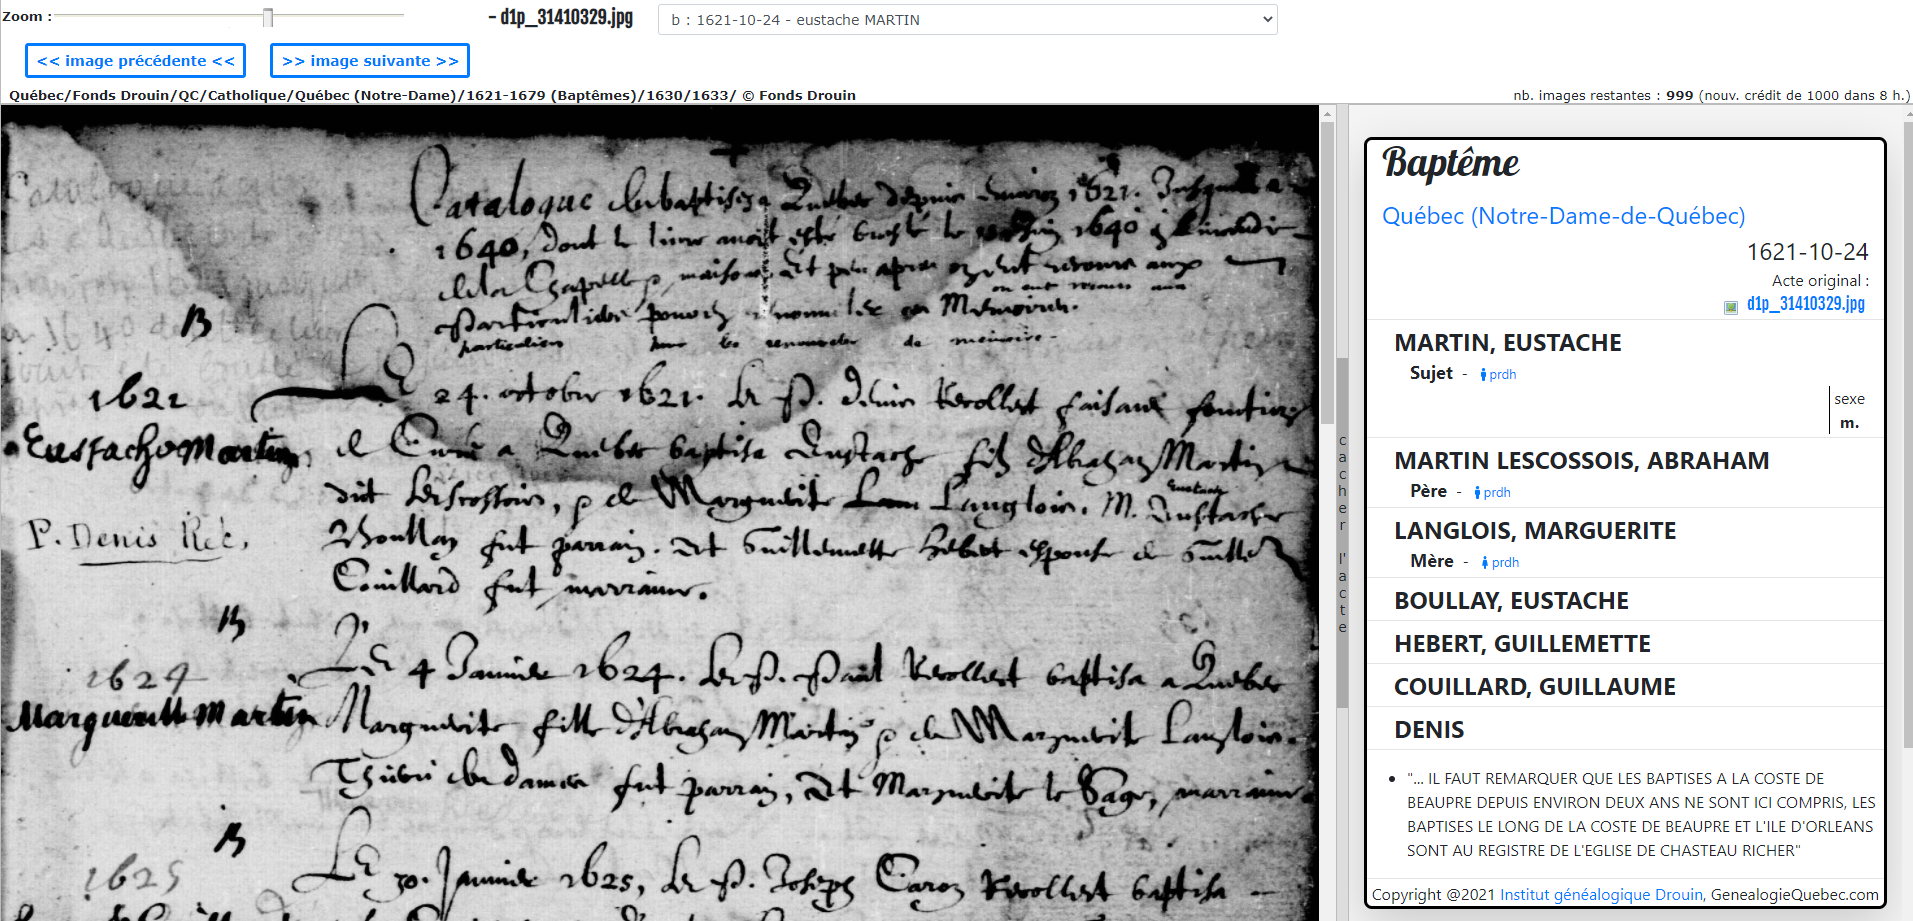 Zoom :
- d1p_31410329.jpg
b : 1621-10-24 - eustache MARTIN
<< image précédente <<
>> image suivante >>
Québec/Fonds Drouin/QC/Catholique/Québec (Notre-Dame)/1621-1679 (Baptêmes)/1630/1633/ © Fonds Drouin
nb. images restantes : 999 (nouv. crédit de 1000 dans 8 h.)
Catalogue des baptises a Quebec depuis 1621. Jusque
1640, dont le livre avoit esté bruslé le 1640
de la Chapelle maison. Et peu apres recours aux
on eut recours aux
particuliers pour les renouveler en Memoires.
particuliers pour les renouveler de mémoire.
B
1621
Eustache Martin,
P. Denis Rec.
Le 24. octobre 1621. Le P. Denis Recollect faisant
de Curé a Quebec baptisa Eustache fils d'Abraham Martin
dit Lescossois, & de Marguerite Langlois. M. Eustache
Eustache
Boullay fut parrain. Et Guillemette Hebert espouse de Guille
Couillard fut marraine.
B
1624
Marguerite Martin
Le 4 Janvier 1624. Le P. Paul Recollect baptisa a Quebec
Marguerite fille d'Abraham Martin & de Marguerite Langlois.
fut parrain, Et Marguerite le Sage, marraine
B
1625
Le 30. Janvier 1625, Le P. Joseph Caron Recollect baptisa
cacher l'acte
Baptême
Québec (Notre-Dame-de-Québec)
1621-10-24
Acte original :
d1p_31410329.jpg
MARTIN, EUSTACHE
Sujet - prdh
sexe
m.
MARTIN LESCOSSOIS, ABRAHAM
Père - prdh
LANGLOIS, MARGUERITE
Mère - prdh
BOULLAY, EUSTACHE
HEBERT, GUILLEMETTE
COUILLARD, GUILLAUME
DENIS
• "... IL FAUT REMARQUER QUE LES BAPTISES A LA COSTE DE
BEAUPRE DEPUIS ENVIRON DEUX ANS NE SONT ICI COMPRIS, LES
BAPTISES LE LONG DE LA COSTE DE BEAUPRE ET L'ILE D'ORLEANS
SONT AU REGISTRE DE L'EGLISE DE CHASTEAU RICHER"
Copyright @2021 Institut généalogique Drouin, GenealogieQuebec.com